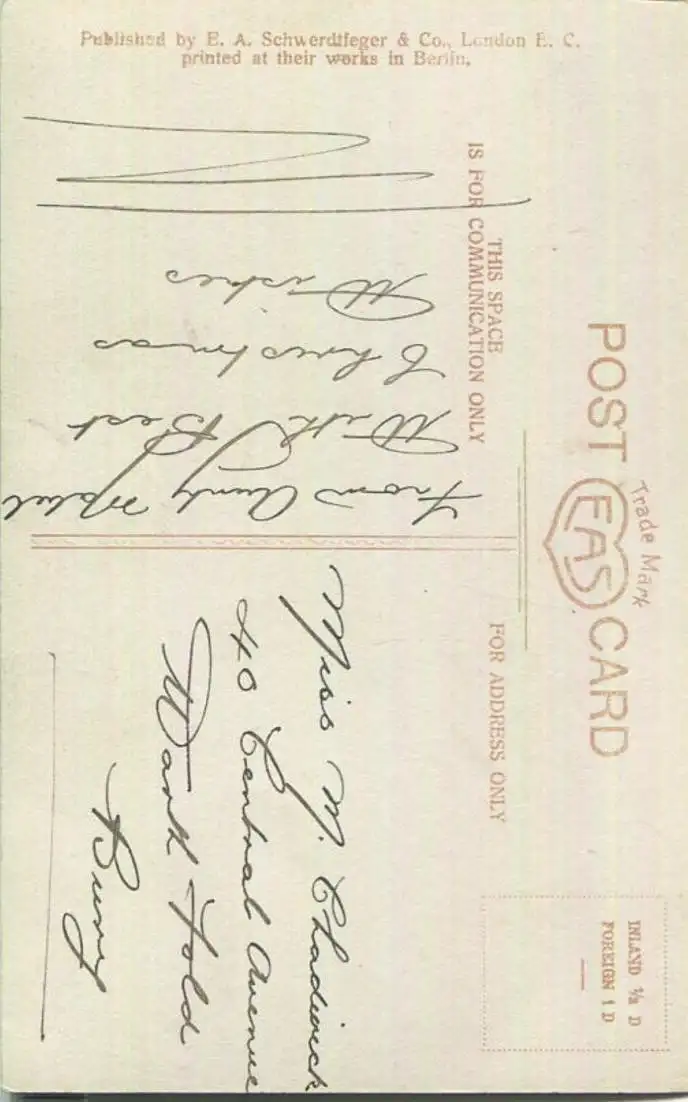 Published by E. A. Schwerdtfeger & Co., London E. C.
printed at their works in Berlin.
POST CARD
EAS
Trade Mark
THIS SPACE
IS FOR COMMUNICATION ONLY
FOR ADDRESS ONLY
INLAND ½ D
FOREIGN 1 D
From Aunty Mabel
With Best
Christmas
Wishes
Miss M. Chadwick
40 Central Avenue
Wark Fold
Bury